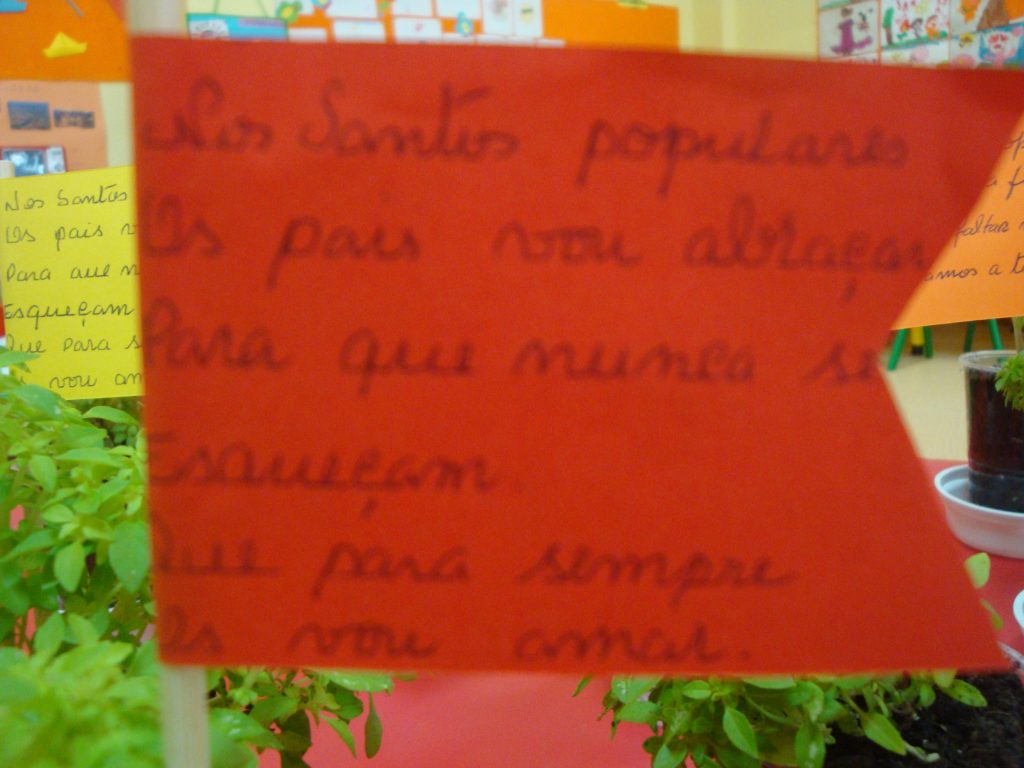 Nos Santos populares
Os pais vou abraçar
Para que nunca se
Esqueçam.
Que para sempre
Os vou amar.
Nos Santos
Os pais v
Para que n
Esqueçam
Que para s
Os vou am
faltar
amos a t